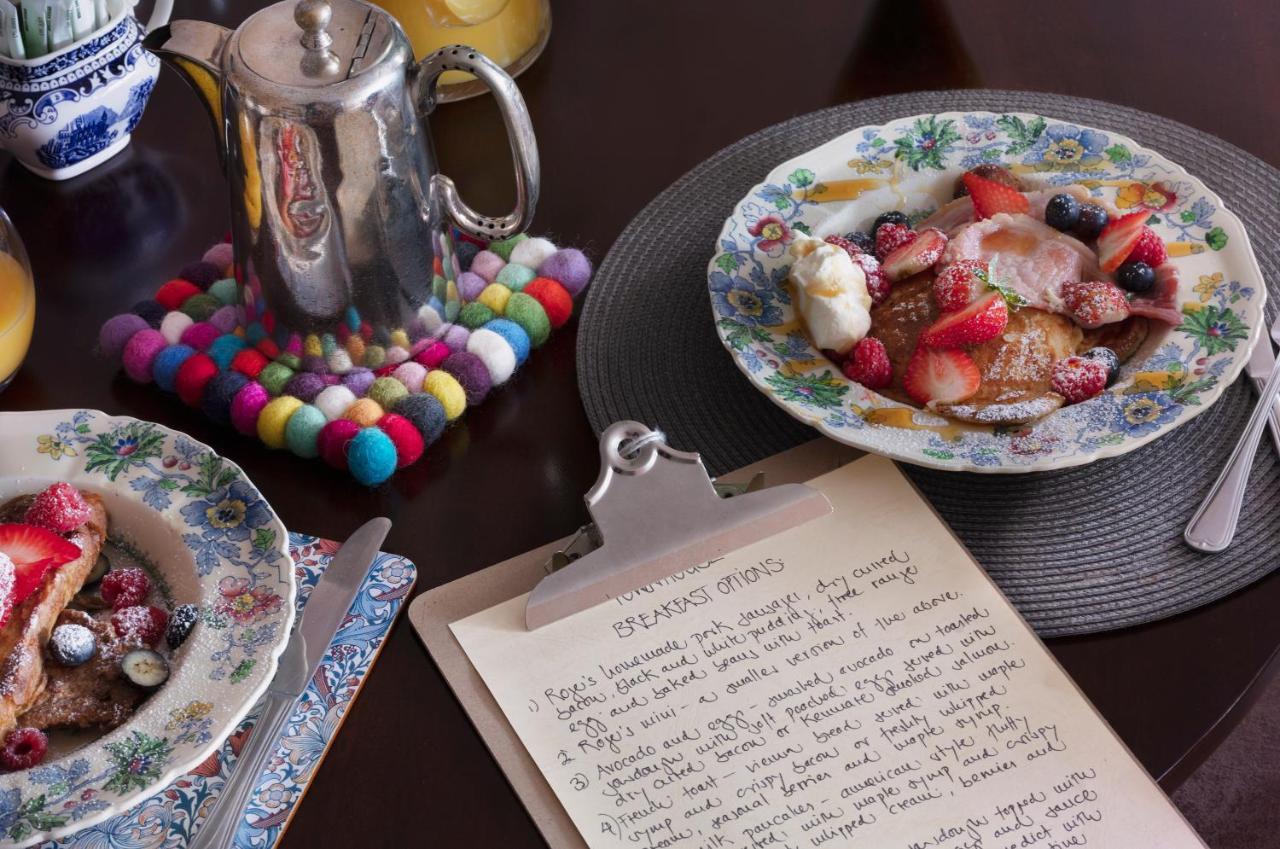 BREAKFAST OPTIONS:
1) Roje's homemade pork sausages, dry cured
bacon, black and white pudding, free range
egg and baked beans with toast
2) Roje's mini - a smaller version of the above.
3) Avocado and egg - smashed avocado on toasted
sourdough with soft poached eggs served with
dry cured bacon or Kenmare smoked salmon.
4) French toast - vienna bread served with maple
syrup and crispy bacon or freshly whipped
cream, seasonal berries and maple syrup.
milk pancakes - american style fluffy
with maple syrup and crispy
whipped cream, berries and
sourdough topped with
and sauce
benedict with